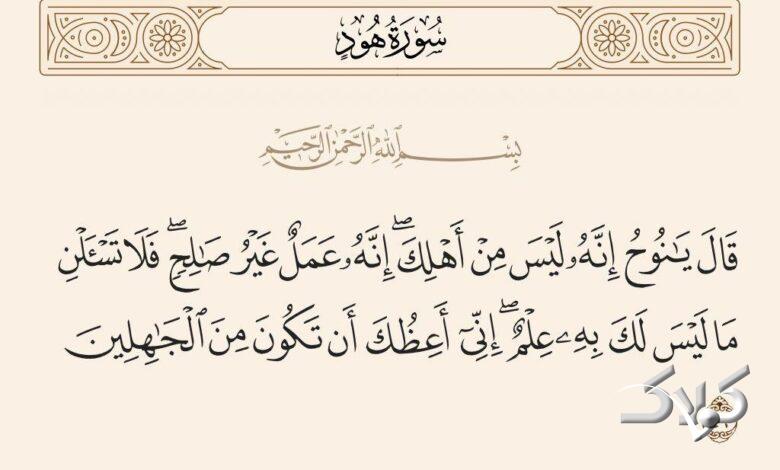 سُورَةُ هُودٍ
بِسْمِ ٱللَّهِ ٱلرَّحْمَٰنِ ٱلرَّحِيمِ
قَالَ يَـٰنُوحُ إِنَّهُۥ لَيْسَ مِنْ أَهْلِكَ ۖ إِنَّهُۥ عَمَلٌ غَيْرُ صَـٰلِحٍ ۖ فَلَا تَسْـَٔلْنِ
مَا لَيْسَ لَكَ بِهِۦ عِلْمٌ ۖ إِنِّىٓ أَعِظُكَ أَن تَكُونَ مِنَ ٱلْجَـٰهِلِينَ